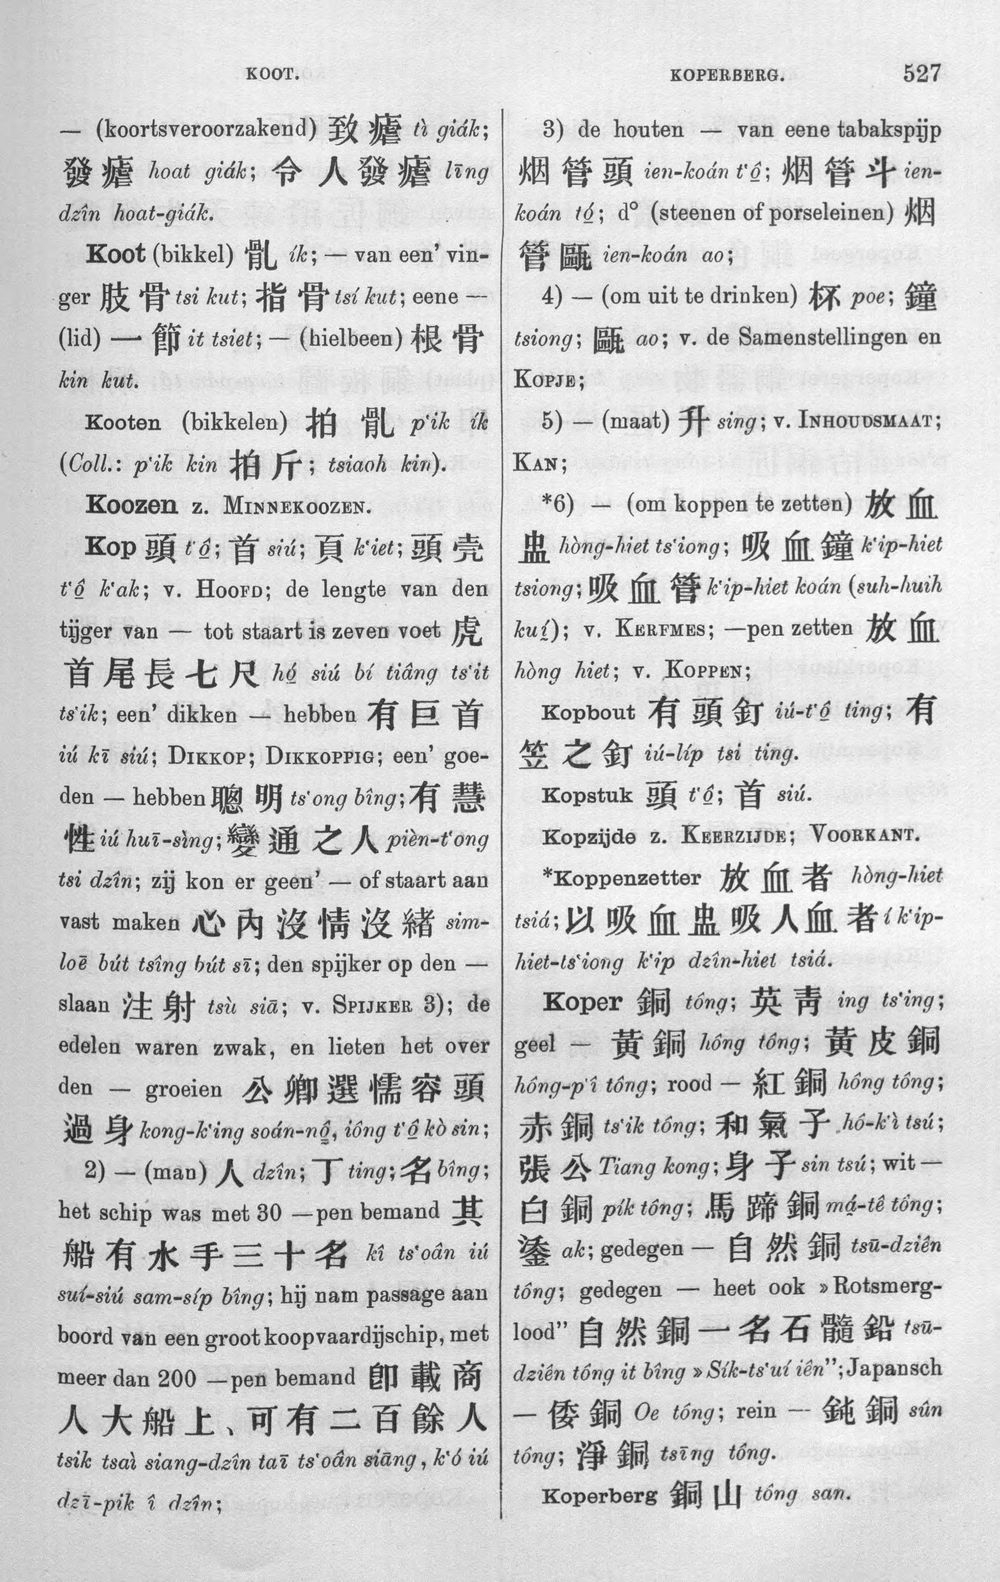 KOOT.
KOPERBERG.
527
— (koortsveroorzakend) 致瘧 tì giák;
發瘧 hoat giák; 令人發瘧 līng
dzîn hoat-giák.
Koot (bikkel) ík; — van een' vin-
ger 肢骨 tsi kut; 指骨 tsí kut; eene —
(lid) 一節 it tsiet; — (hielbeen) 根骨
kin kut.
Kooten (bikkelen) 拍 p'ik ík
(Coll.: p'ik kin 拍斤; tsiaoh kin).
Koozen z. MINNEKOOZEN.
Kop 頭 t'ô; 首 siú; 頁 k'iet; 頭壳
t'ô k'ak; v. HOOFD; de lengte van den
tijger van — tot staart is zeven voet 虎
首尾長七尺 hó siú bí tiâng ts'it
ts'ik; een' dikken — hebben 有巨首
iú kī siú; DIKKOP; DIKKOPPIG; een' goe-
den — hebben 聰明 ts'ong bîng; 有慧
性 iú huī-sìng; 變通之人 pièn-t'ong
tsi dzîn; zij kon er geen' — of staart aan
vast maken 心內沒情沒緒 sim-
loē bút tsîng bút sī; den spijker op den —
slaan 注射 tsù siā; v. SPIJKER 3); de
edelen waren zwak, en lieten het over
den — groeien 公卿選懦容頭
過身 kong-k'ing soán-nō, iông t'ô kò sin;
2) — (man) 人 dzîn; 丁 ting; 名 bîng;
het schip was met 30 —pen bemand 其
船有水手三十名 kî ts'oân iú
suí-siú sam-síp bîng; hij nam passage aan
boord van een groot koopvaardijschip, met
meer dan 200 —pen bemand 卽載商
人大船上、可有二百餘人
tsik tsaì siang-dzîn taī ts'oân siāng, k'ó iú
dzī-pik î dzîn;
3) de houten — van eene tabakspijp
烟管頭 ien-koán t'ô; 烟管斗 ien-
koán tó; d° (steenen of porseleinen) 烟
管甌 ien-koán ao;
4) — (om uit te drinken) 杯 poe; 鐘
tsiong; 甌 ao; v. de Samenstellingen en
KOPJE;
5) — (maat) 升 sing; v. INHOUDSMAAT;
KAN;
*6) — (om koppen te zetten) 放血
盅 hòng-hiet ts'iong; 吸血鐘 k'ip-hiet
tsiong; 吸血管 k'ip-hiet koán (suh-huih
kuí); v. KERFMES; —pen zetten 放血
hòng hiet; v. KOPPEN;
Kopbout 有頭釘 iú-t'ô ting; 有
笠之釘 iú-líp tsi ting.
Kopstuk 頭 t'ô; 首 siú.
Kopzijde z. KEERZIJDE; VOORKANT.
*Koppenzetter 放血者 hòng-hiet
tsiá; 以吸血盅吸人血者 í k'ip-
hiet-ts'iong k'ip dzîn-hiet tsiá.
Koper 銅 tóng; 英靑 ing ts'ing;
geel — 黃銅 hông tông; 黃皮銅
hông-p'î tông; rood — 紅銅 hông tông;
赤銅 ts'ik tông; 和氣子 hô-k'ì tsú;
張公 Tiang kong; 身子 sin tsú; wit —
白銅 pík tông; 馬蹄銅 má-tê tông;
鋈 ak; gedegen — 自然銅 tsū-dziên
tông; gedegen — heet ook »Rotsmerg-
lood" 自然銅一名石髓鉛 tsū-
dziên tông it bîng »Sík-ts'uí iên"; Japansch
— 倭銅 Oe tông; rein — 鈍銅 sûn
tông; 淨銅 tsīng tông.
Koperberg 銅山 tông san.